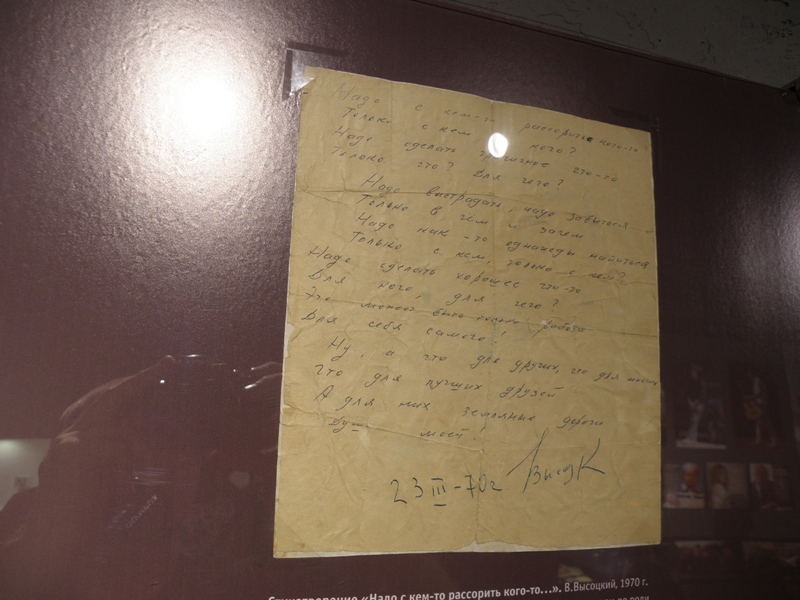 Надо с кем-то рассорить кого-то
Только с кем и кого?
Надо сделать трагичное что-то
Только что? Для чего?
Надо выстрадать, надо забыться
Только в чем и зачем
Надо как-то однажды напиться
Только с кем, только с кем?
Надо сделать хорошее что-то
Для кого, для чего?
Это может быть только работа
Для себя самого!
Ну, а что для других, что для многих
Что для лучших друзей
А для них земляные дороги
Души моей!
23 III-70г ВысК
Стихотворение «Надо с кем-то рассорить кого-то…». В.Высоцкий, 1970 г.